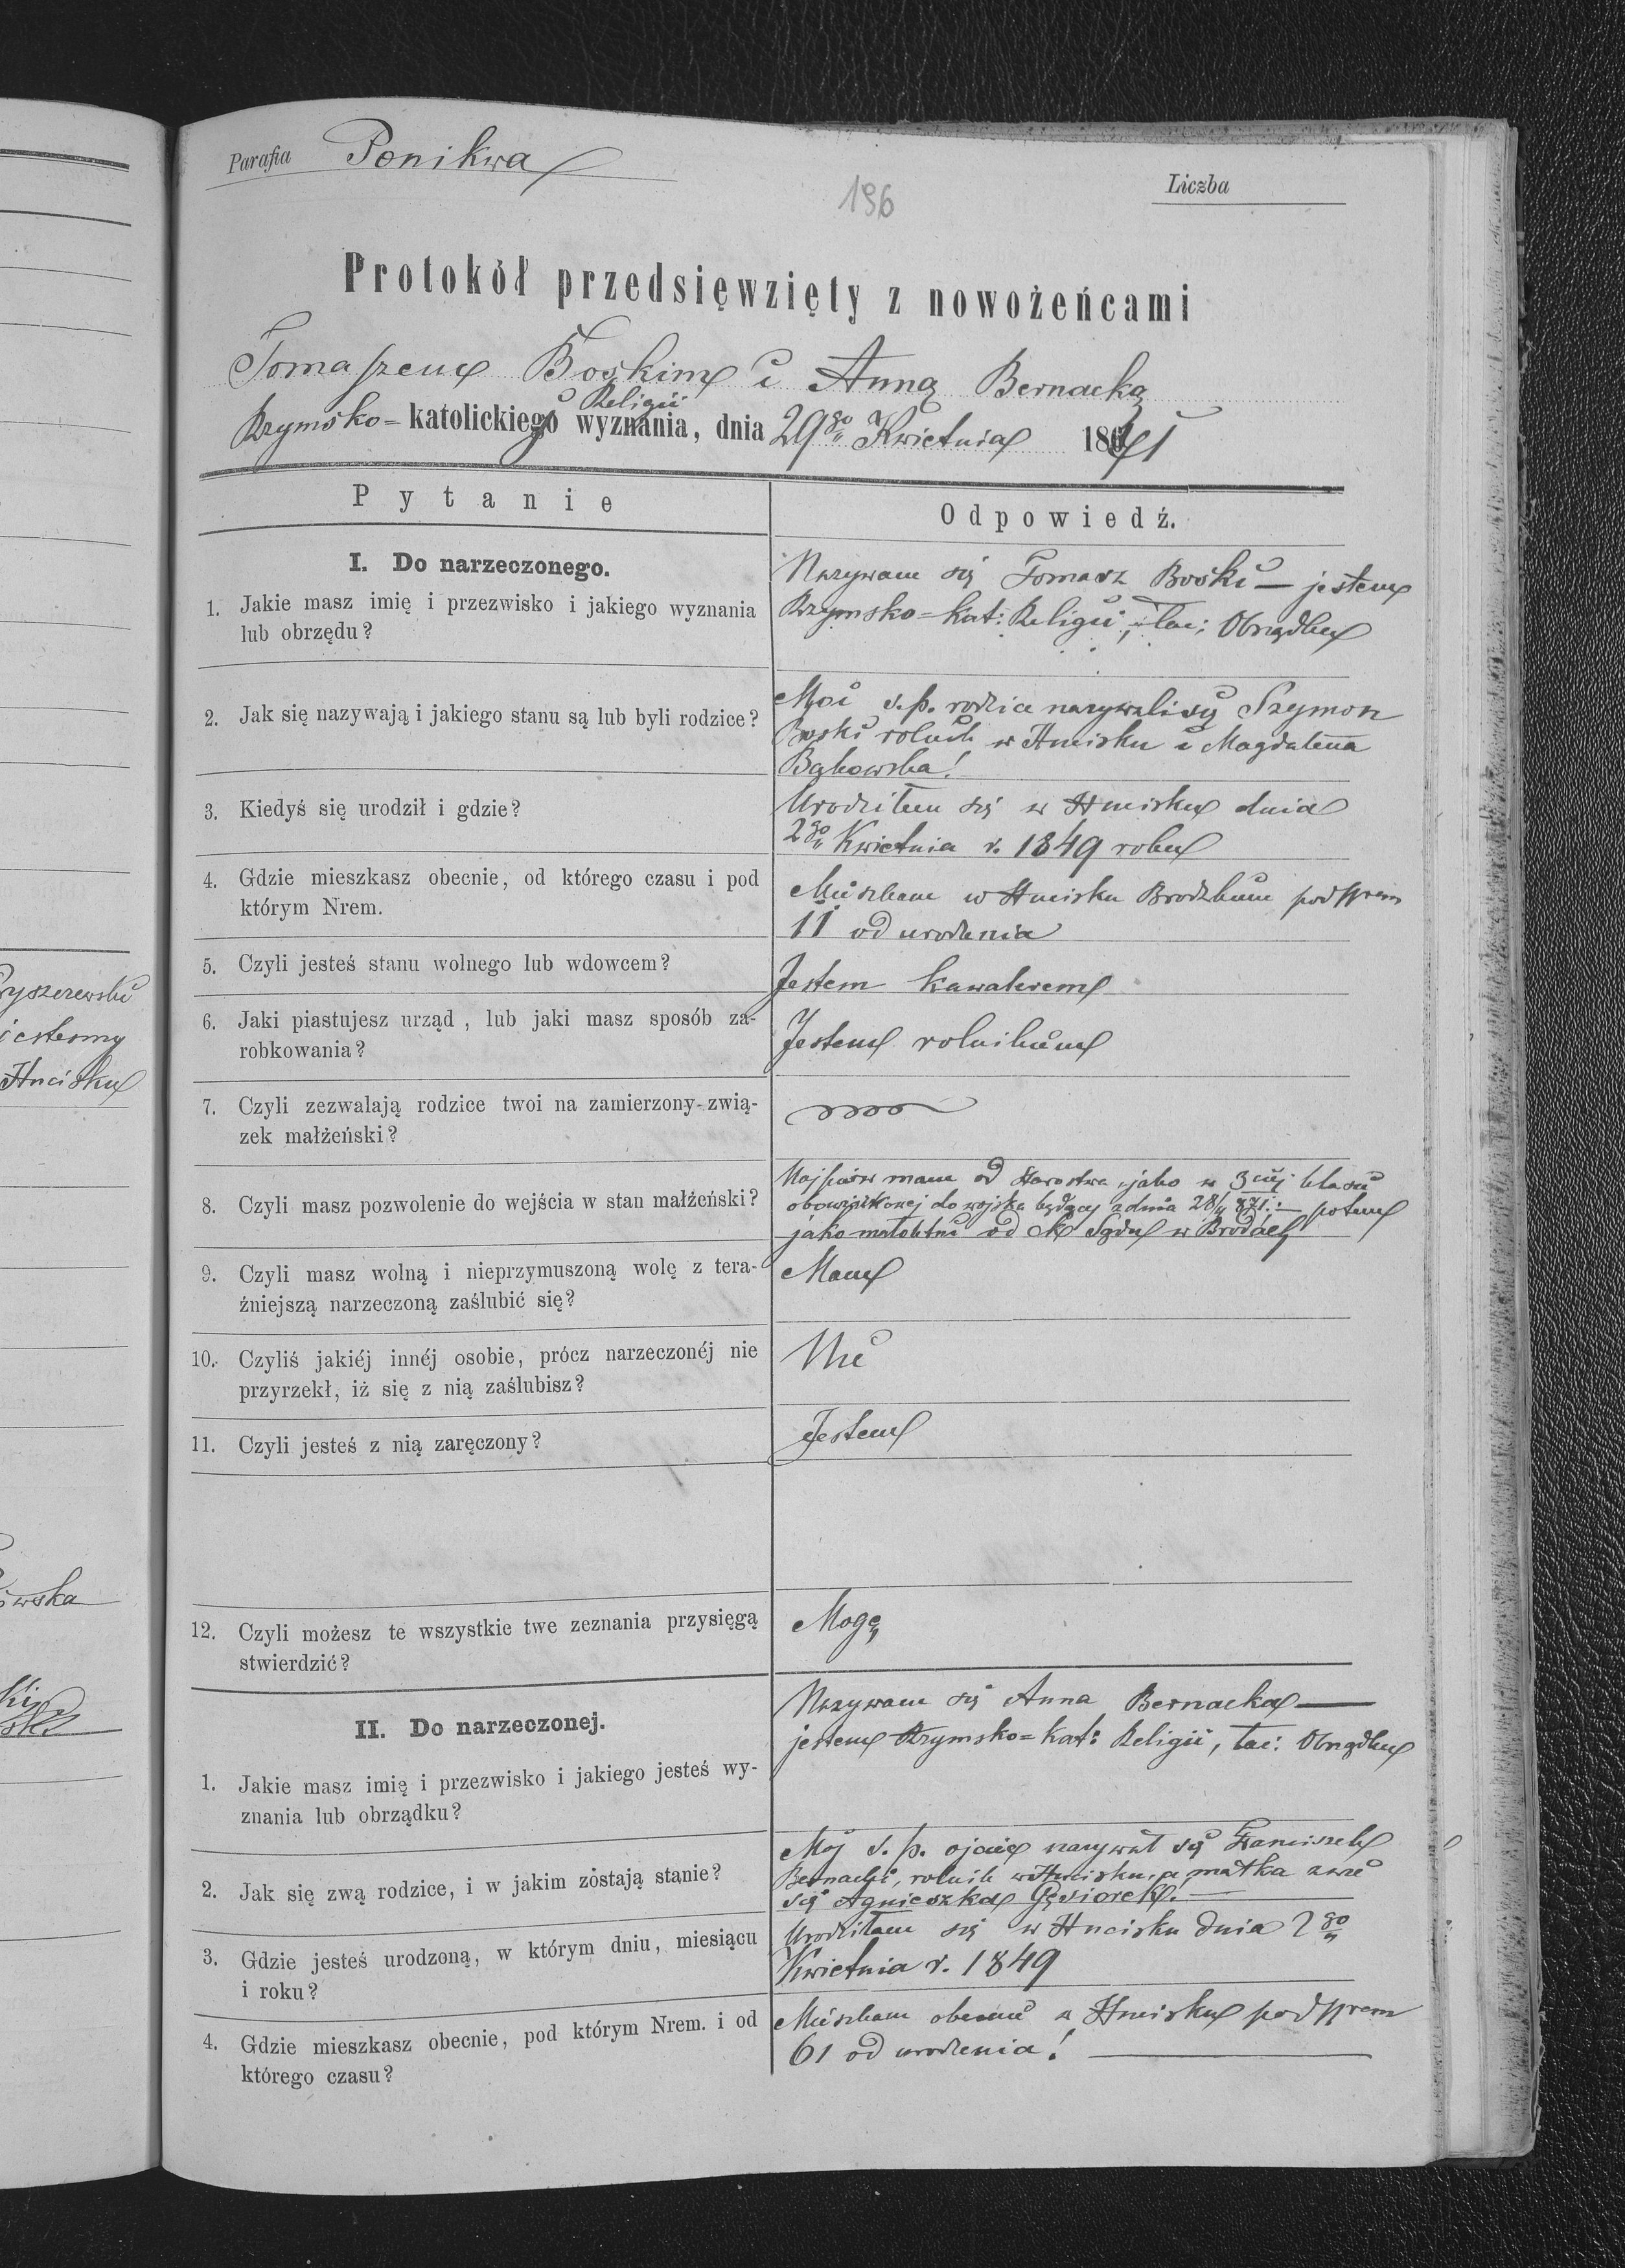 Parafia Ponikwa
196
Liczba
Protokół przedsięwzięty z nowożeńcami
Tomaszem Boskim i Anną Bernacką
Religii
Rzymsko=katolickiego wyznania, dnia 29go Kwietnia 1871
Pytanie
Odpowiedź.
I. Do narzeczonego.
1. Jakie masz imię i przezwisko i jakiego wyznania
lub obrzędu?
Nazywam się Tomasz Boski — jestem
Rzymsko=kat: Religii, łac: Obrządku
2. Jak się nazywają i jakiego stanu są lub byli rodzice?
Moi ś.p. rodzice nazywali się Szymon
Boski rolnik w Hucisku i Magdalena
Bąkowska!
3. Kiedyś się urodził i gdzie?
Urodziłem się w Hucisku dnia
2go Kwietnia r. 1849 roku
4. Gdzie mieszkasz obecnie, od którego czasu i pod
którym Nrem.
Mieszkam w Hucisku Brodzkim pod Nrem
11 od urodzenia
5. Czyli jesteś stanu wolnego lub wdowcem?
Jestem kawalerem
6. Jaki piastujesz urząd, lub jaki masz sposób za-
robkowania?
Jestem rolnikiem
7. Czyli zezwalają rodzice twoi na zamierzony zwią-
zek małżeński?
8. Czyli masz pozwolenie do wejścia w stan małżeński?
Najpierw mam od Starostwa, jako w 3ciej klasie
obowiązkowej do wojska będący z dnia 28/4 871.: — potem
jako małoletni od Sądu w Brodach
9. Czyli masz wolną i nieprzymuszoną wolę z tera-
źniejszą narzeczoną zaślubić się?
Mam
10. Czyliś jakiéj innéj osobie, prócz narzeczonéj nie
przyrzekł, iż się z nią zaślubisz?
Nie
11. Czyli jesteś z nią zaręczony?
Jestem
12. Czyli możesz te wszystkie twe zeznania przysięgą
stwierdzić?
Mogę
II. Do narzeczonej.
1. Jakie masz imię i przezwisko i jakiego jesteś wy-
znania lub obrządku?
Nazywam się Anna Bernacka —
jestem Rzymsko=kat: Religii, łac: Obrządku
2. Jak się zwą rodzice, i w jakim zostają stanie?
Mój ś.p. ojciec nazywał się Franciszek
Bernacki, rolnik w Hucisku, a matka zwie
się Agnieszka Gąsiorek. —
3. Gdzie jesteś urodzoną, w którym dniu, miesiącu
i roku?
Urodziłam się w Hucisku dnia 2go
Kwietnia r. 1849
4. Gdzie mieszkasz obecnie, pod którym Nrem. i od
którego czasu?
Mieszkam obecnie w Hucisku pod Nrem
61 od urodzenia! —
yszerewski
jestesmy
Hucisku
wska